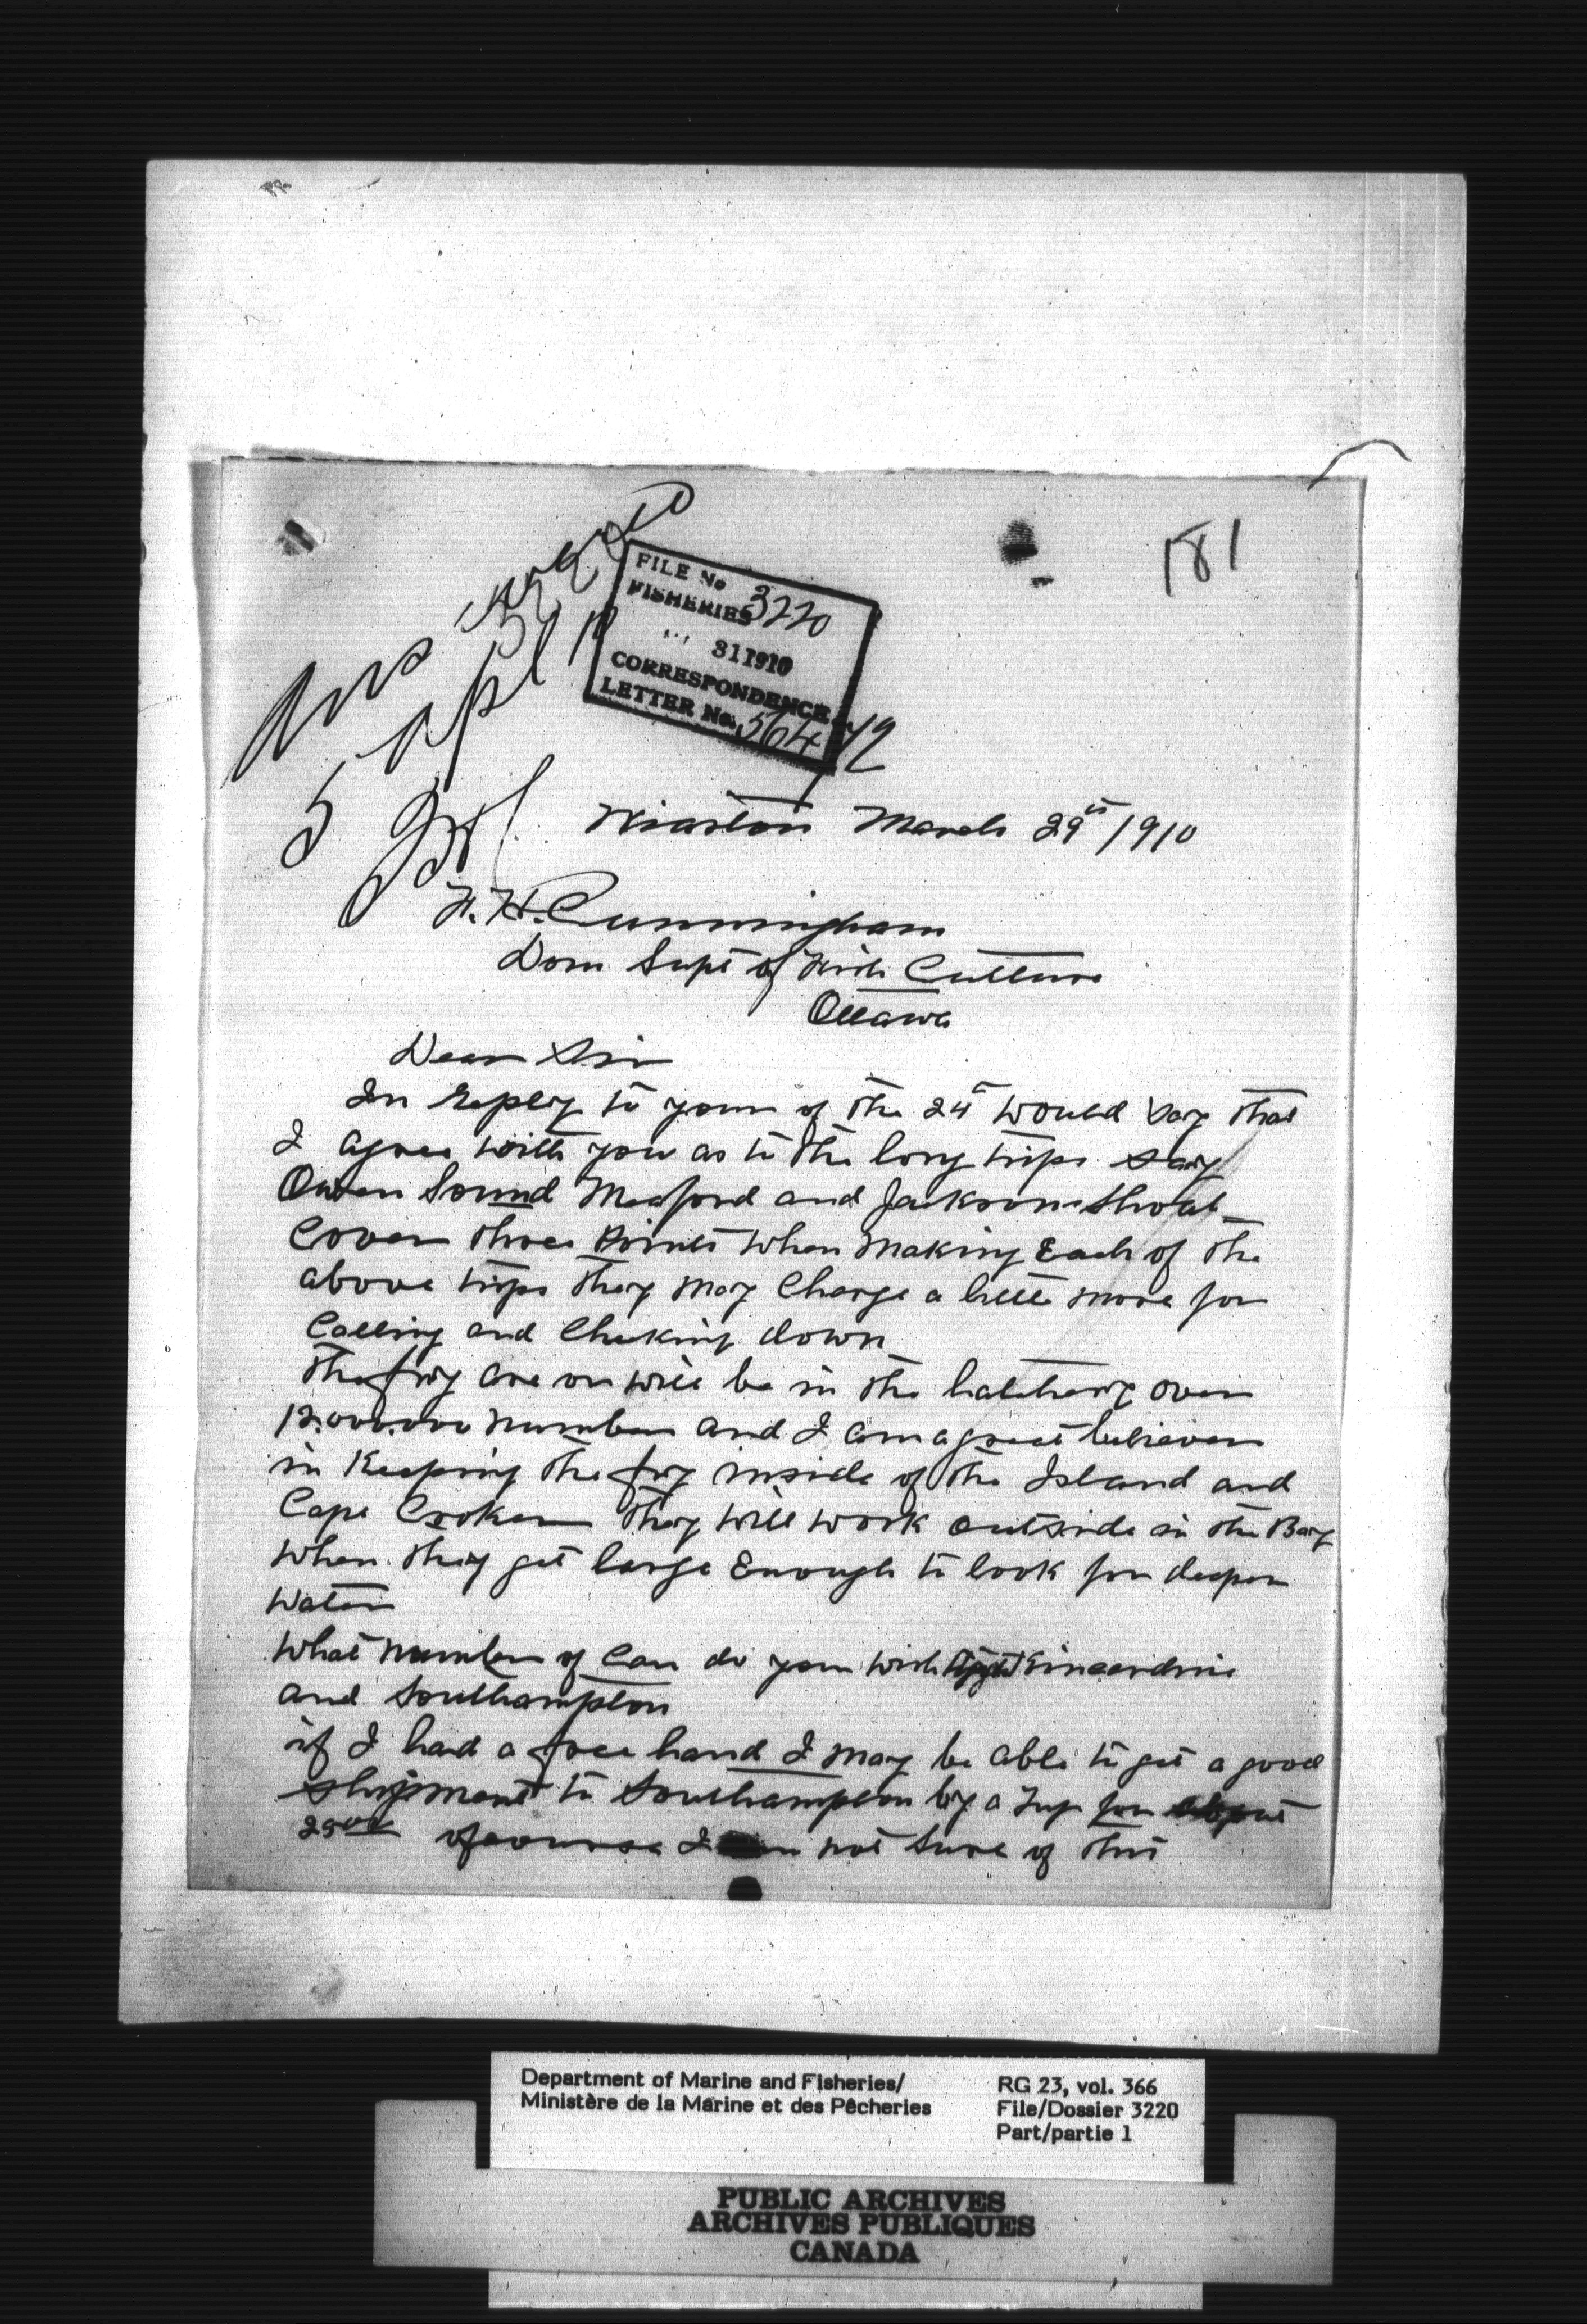 181
Ans
5 Apl 10
FILE No 3220
FISHERIES
31 1910
CORRESPONDENCE
LETTER No. 56472
Wiarton March 29th 1910
F. H. Cunningham
Dom Supt of Fish Culture
Ottawa
Dear Sir
In reply to yours of the 24th would say that
I agree with you as to the long trips say
Owen Sound Meaford and Jacksons Shoal
Cover three Points when making Each of the
above trips they may Charge a little more for
Calling and Checking down
The fry are or will be in the hatchery over
12.000.000 number and I am a great believer
in Keeping the fry inside of the Island and
Cape Croker They will work outside in the Bay
when they get large Enough to look for deeper
water
What number of Can do you wish Kincardine
and Southampton
if I had a free hand I may be able to get a good
shipment to Southampton by a Tug for about
25.00 of course I am not sure of this
Department of Marine and Fisheries/
Ministère de la Marine et des Pêcheries
RG 23, vol. 366
File/Dossier 3220
Part/partie 1
PUBLIC ARCHIVES
ARCHIVES PUBLIQUES
CANADA